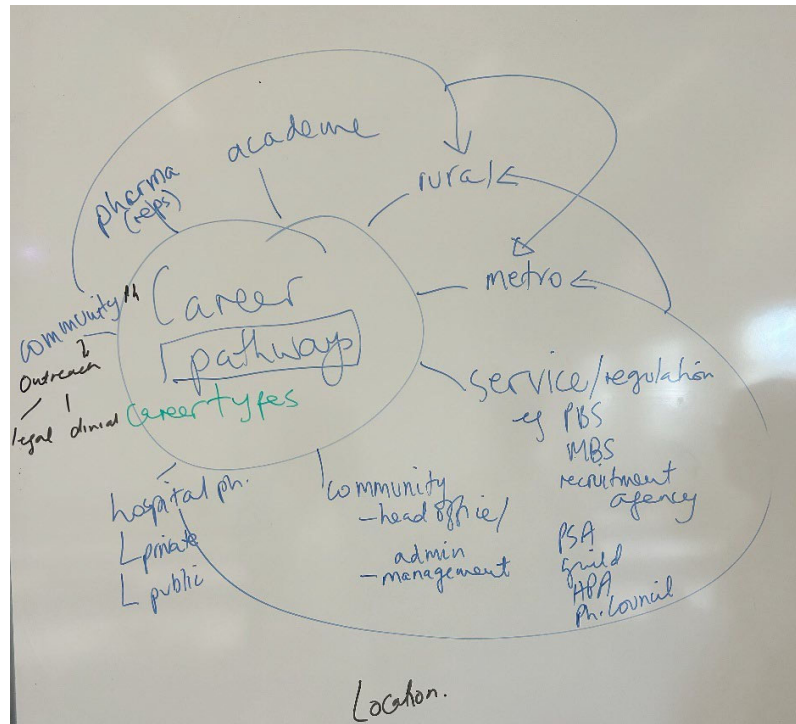 academe
pharma
(reps)
rural
metro
Career
pathways
Career types
community Ph
Outreach
legal clinical
service/regulation
eg PBS
MBS
recruitment
agency
PSA
guild
HPA
Ph. Council
hospital ph.
private
public
community
- head office/
admin
- management
Location.